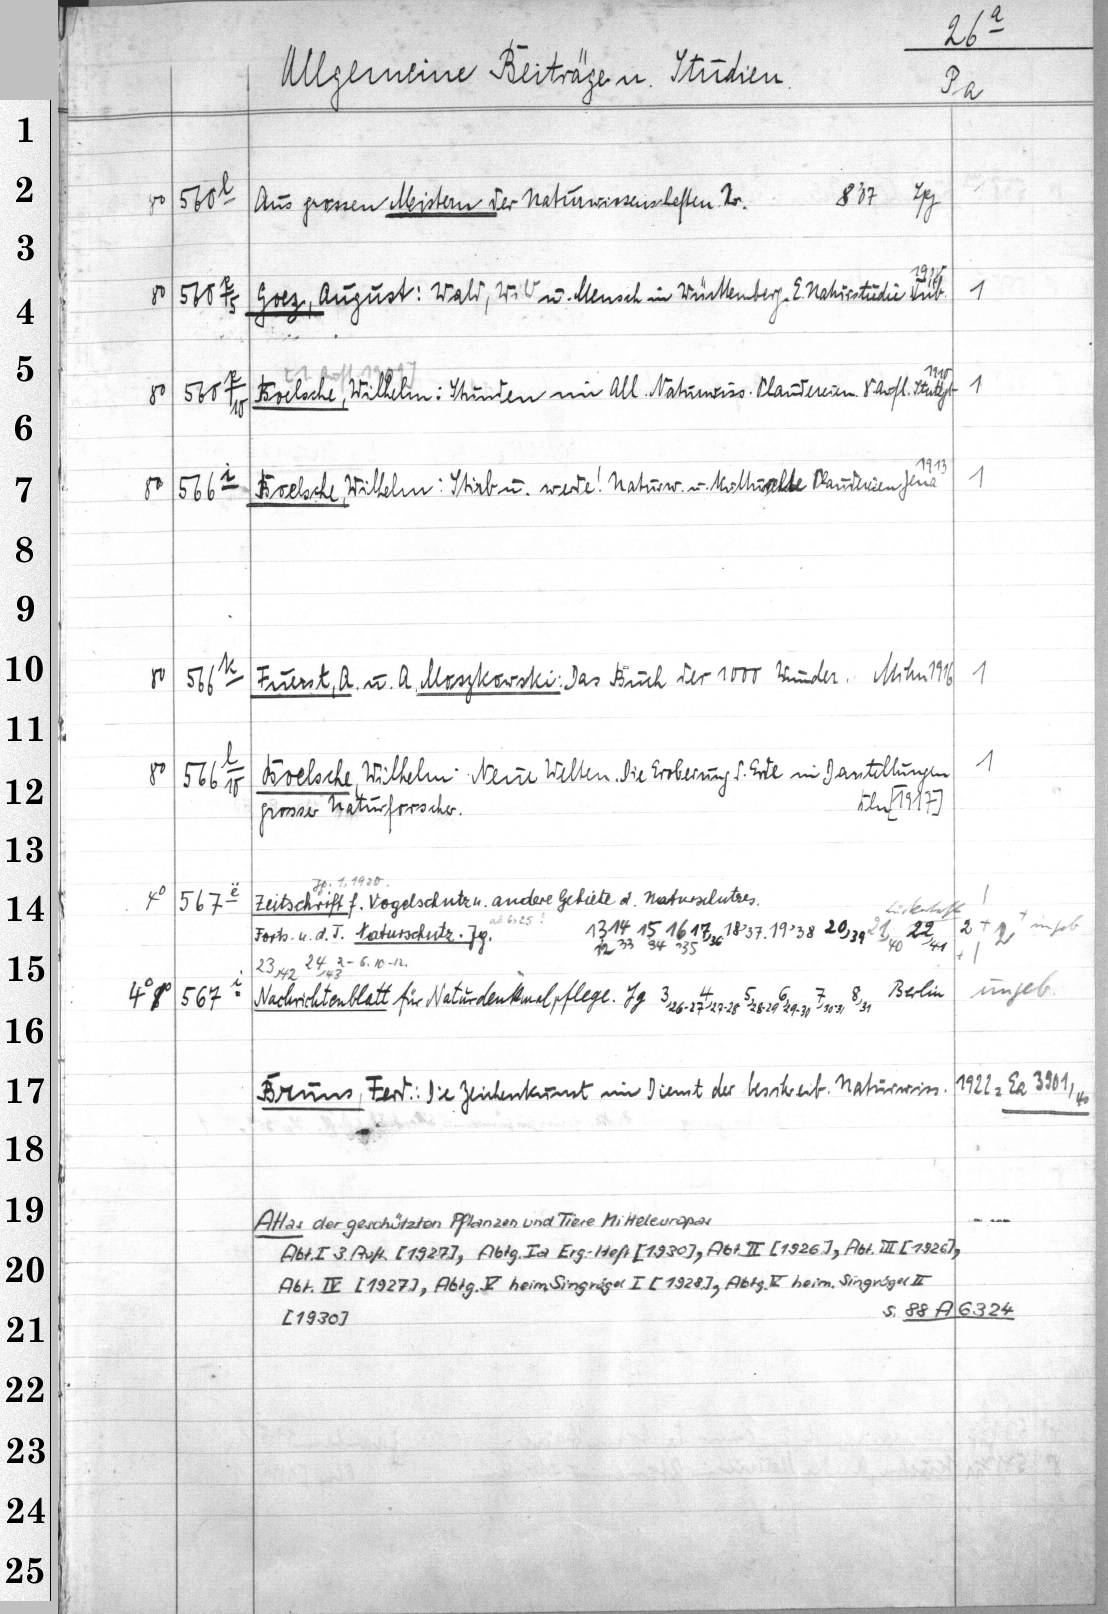 26a
Allgemeine Beiträge u. Studien.
Pa
1
2
8° 560 l Aus grossen Meistern der Naturwissenschaften. 8'07 Lpg
3
1915
8° 560 p/5 Goez, August: Wald, Wild u. Mensch in Württemberg. E. Naturstudie Tüb. 1
4
5
1910
8° 560 p/10 Boelsche, Wilhelm: Stunden im All. Naturwiss. Plaudereien. 8 Aufl. Stuttgt 1
6
1913
7
8° 566 i Boelsche, Wilhelm: Stirb u. werde! Naturw. u. kulturelle Plaudereien Jena 1
8
9
10
8° 566 k Fuerst, A. u. A. Moszkowski: Das Buch der 1000 Wunder. Mchn 1916 1
11
8° 566 l/10 Boelsche, Wilhelm: Neue Welten. Die Eroberung d. Erde in Darstellungen 1
12
grosser Naturforscher. Bln [1917]
13
Jg. 1. 1920.
14
4° 567 e Zeitschrift f. Vogelschutz u. andere Gebiete d. Naturschutzes.
Forts. u. d. T. Naturschutz. Jg. 13 14 15 16 17,36 18'37. 19'38 20,39 21,40 22,41 2 + 2 + ungeb
12 33 34 35
15
23,42 24,43 2-6.10-12.
4° 8° 567 i Nachrichtenblatt für Naturdenkmalpflege. Jg 3,26-27 4,27-28 5,28-29 6,29-30 7,30-31 8,31 Berlin ungeb.
16
17
Bruns, Ferd.: Die Zeichenkunst im Dienst der beschreib. Naturwiss. 1922 = Ea 3901/40
18
19
Atlas der geschützten Pflanzen und Tiere Mitteleuropas
Abt. I 3. Aufl. [1927], Abtg. Ia Erg.-Heft [1930], Abt. II [1926], Abt. III [1926],
20
Abt. IV [1927], Abtg. V heim. Singvögel I [1928], Abtg. V heim. Singvögel II
[1930] s. 88 A 6324
21
22
23
24
25